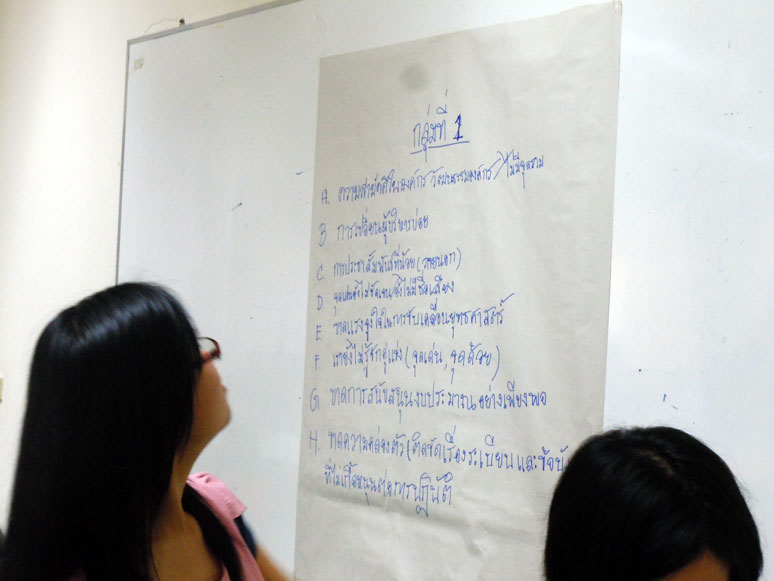 กลุ่มที่ 1
A ความสามัคคีในองค์กร วัฒนธรรมองค์กร / ไม่มีจุดรวม
B การเปลี่ยนผู้บริหารบ่อย
C การประชาสัมพันธ์ที่น้อย (ภายนอก)
D จุดเด่นยังไม่ชัดเจน/ยังไม่มีชื่อเสียง
E ขาดแรงจูงใจในการขับเคลื่อนยุทธศาสตร์
F เรายังไม่รู้จักคู่แข่ง (จุดเด่น, จุดด้อย)
G ขาดการสนับสนุนงบประมาณอย่างเพียงพอ
H ขาดความคล่องตัว (ติดขัดเรื่องระเบียบและข้อบั
ที่ไม่เกื้อหนุนต่อการปฏิบัติ